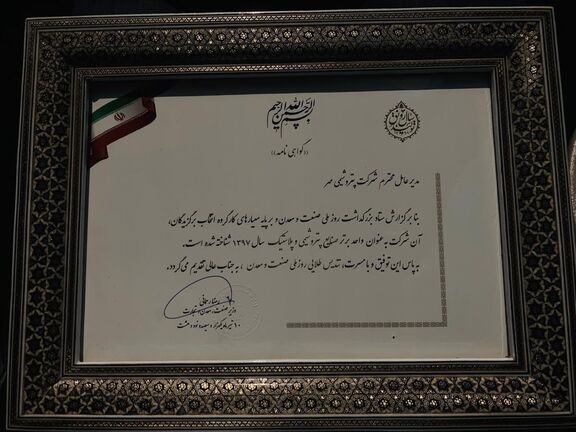 بسم الله الرحمن الرحیم
((گواهی نامه))
مدیرعامل محترم شرکت پتروشیمی مهر
بنا بر گزارش ستاد بزرگداشت روز ملی صنعت و معدن و بر پایه معیارهای کارگروه انتخاب برگزیدگان،
آن شرکت به عنوان واحد برتر صنایع پتروشیمی و پلاستیک سال ۱۳۹۷ شناخته شده است.
به پاس این توفیق و با مسرت، تندیس طلایی روز ملی صنعت و معدن ، به جناب عالی تقدیم می گردد.
رضا رحمانی
وزیر صنعت، معدن و تجارت
۱۰ تیر ماه یکهزار و سیصد و نود و هشت